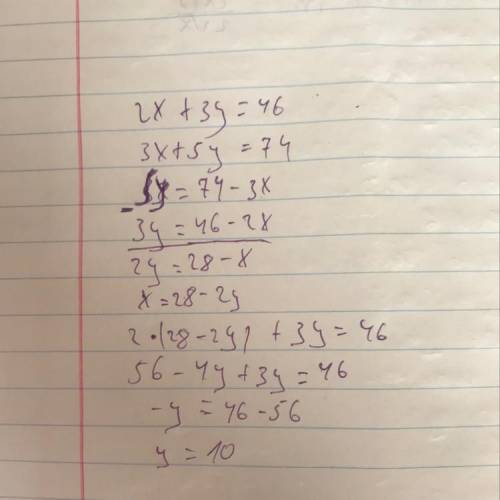 2x + 3y = 46
3x + 5y = 74
5y = 74 - 3x
- 3y = 46 - 2x
2y = 28 - x
x = 28 - 2y
2 • (28 - 2y) + 3y = 46
56 - 4y + 3y = 46
-y = 46 - 56
y = 10